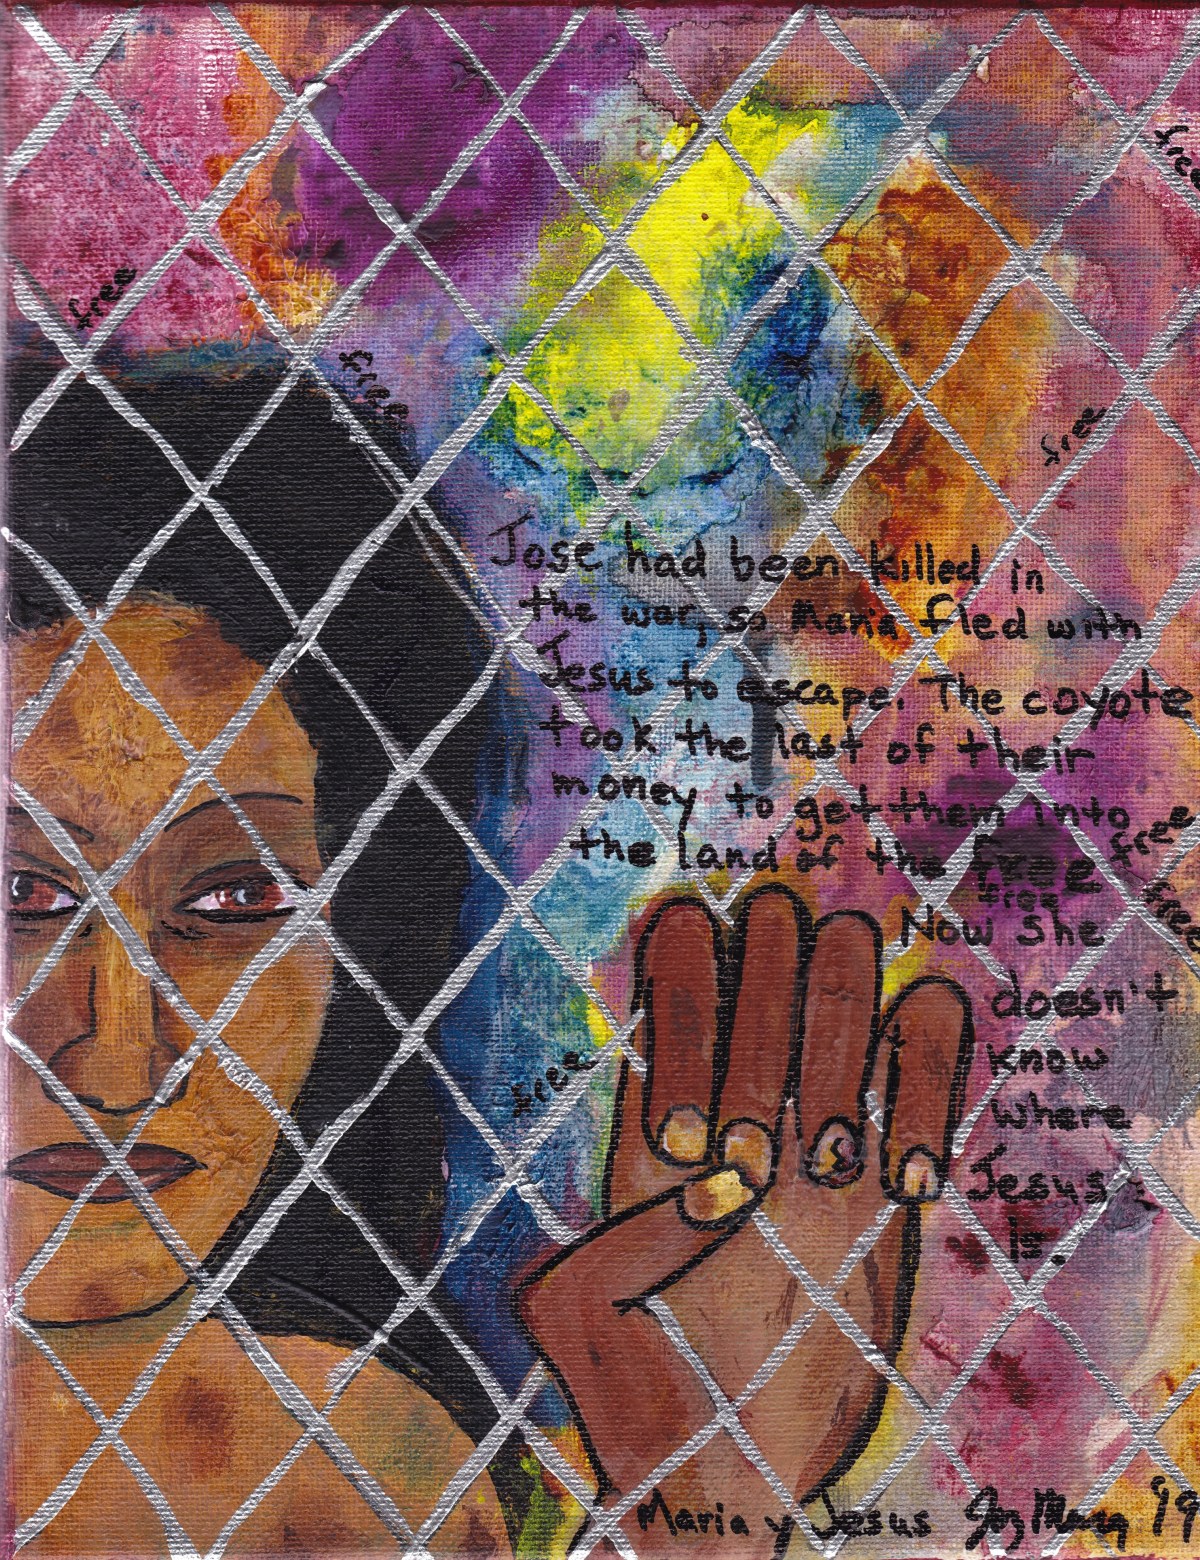 free
free
free
free
Jose had been killed in
the war, so Maria fled with
Jesus to escape. The coyote
took the last of their
money to get them into
the land of the free free
free free
Now she
doesn't
know
where
Jesus
is.
free
Maria y Jesus '99